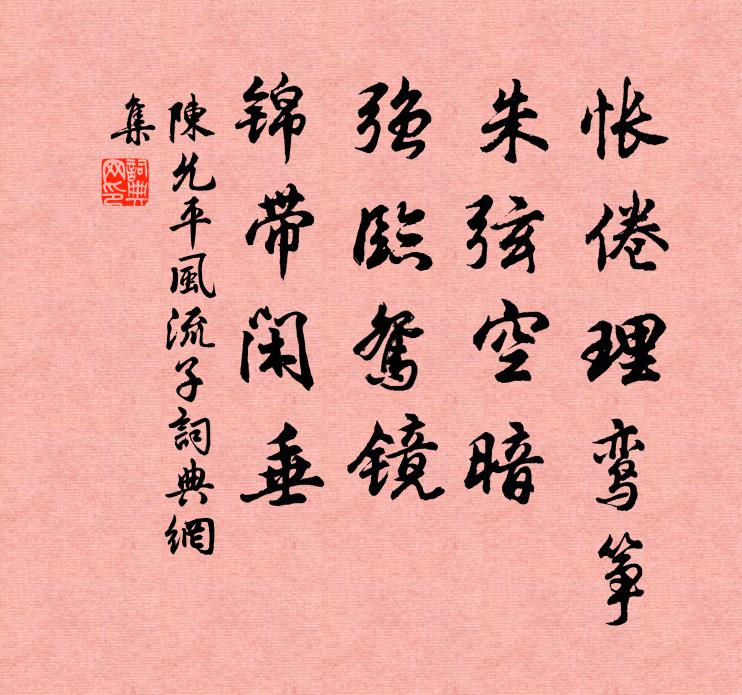 怅倦理鸾筝
朱弦空暗
强临鸳镜
锦带闲垂
陳允平風流子詞典網
集
詞典網印